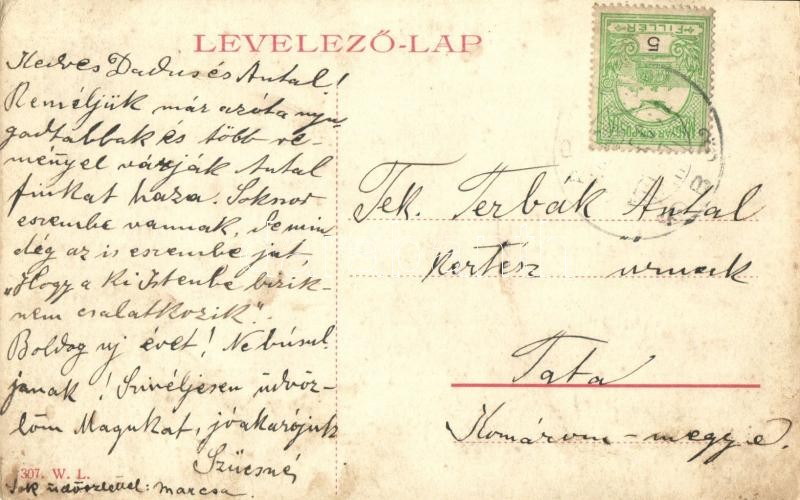 LEVELEZŐ-LAP
Kedves Dadus és Antal!
Reméljük már azóta nyu-
gadtabbak és több re-
ménnyel várják Antal
fiukat haza. Sokszor
eszembe vannak. De min-
dég az is eszembe jut
„Hogy a ki Istenbe bízik-
nem csalatkozik".
Boldog uj évet! Ne búsul-
janak! Szivéljesen üdvöz-
löm Magukat, jóakarójuk
Szücsné
307. W. L.
Sok üdvözlettel: Marcsa.
5
FILLÉR
MAGYAR KIR. POSTA
Tek. Terbák Antal
kertész urnak
Tata
Komárom-megye.